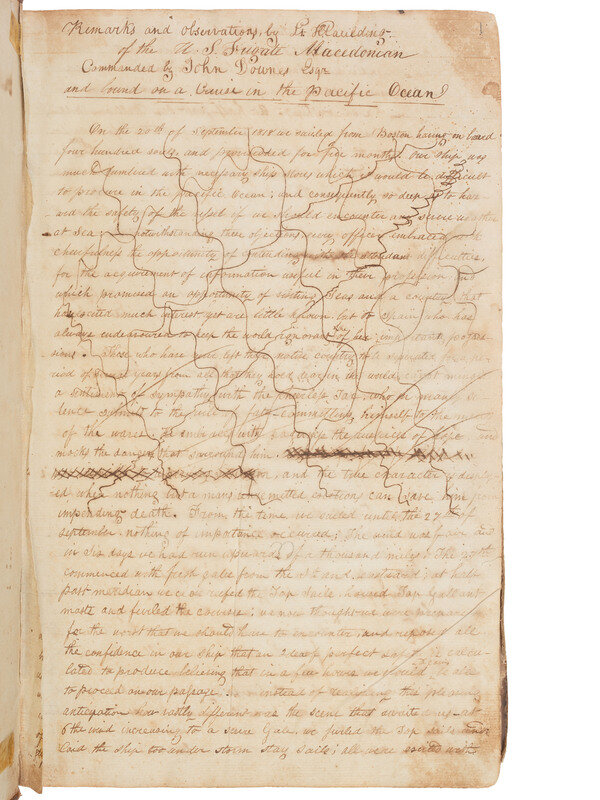 Remarks and observations, by Lt H Paulding
of the U. S Frigate Macedonian
Commanded by John Downes Esqr
and bound on a Cruise in the Pacific Ocean
On the 20th of September 1818 we sailed from Boston having on board
four hundred souls and provided for five months. Our ship was
much with necessary ships stores which it would be difficult
to procure in the Pacific Ocean; and consequently so deep as to haz-
ard the safety of the of we should encounter any severe weather
at sea; notwithstanding these objections every officer embraced with
chearfulness the opportunity of difficulties,
for the acquirement of information useful in their profession and
which promised an opportunity of visiting Seas and a country that
have excited much interest yet are little known but to Spain who has
always endeavoured to keep the world ignorant of her important posses-
sions. Those who have once left their native country to be separated for a pe-
riod of years from all that they love in the world might mingle
a sentiment of sympathy with the Tar, who in many
submit to the of fate committing himself to the mercy
of the waves. He with the of hope and
mocks the danger that surrounds him.
and the true character is display-
ed when nothing but a mans exertions can save him from
impending death. From the time we sailed until the 27th of
September nothing of importance occurred; The wind was fair and
in six days we had run upwards of a thousand miles; The 27th
commenced with fresh gales from the at half
past meridian we reefed the Top Sails, housed Top Gallant
masts and furled the courses; we now thought we were prepared
for the worst that we should have to encounter, and reposed all
the confidence in our ship that perfect calcu-
lated to produce believing that in a few hours we would be able
to proceed on our passage. instead of this pleasing
anticipation how vastly different was the scene that awaited us. at
6 the wind increasing to a severe Gale, we furled the Top Sails and
laid the ship too under storm stay sails; all were